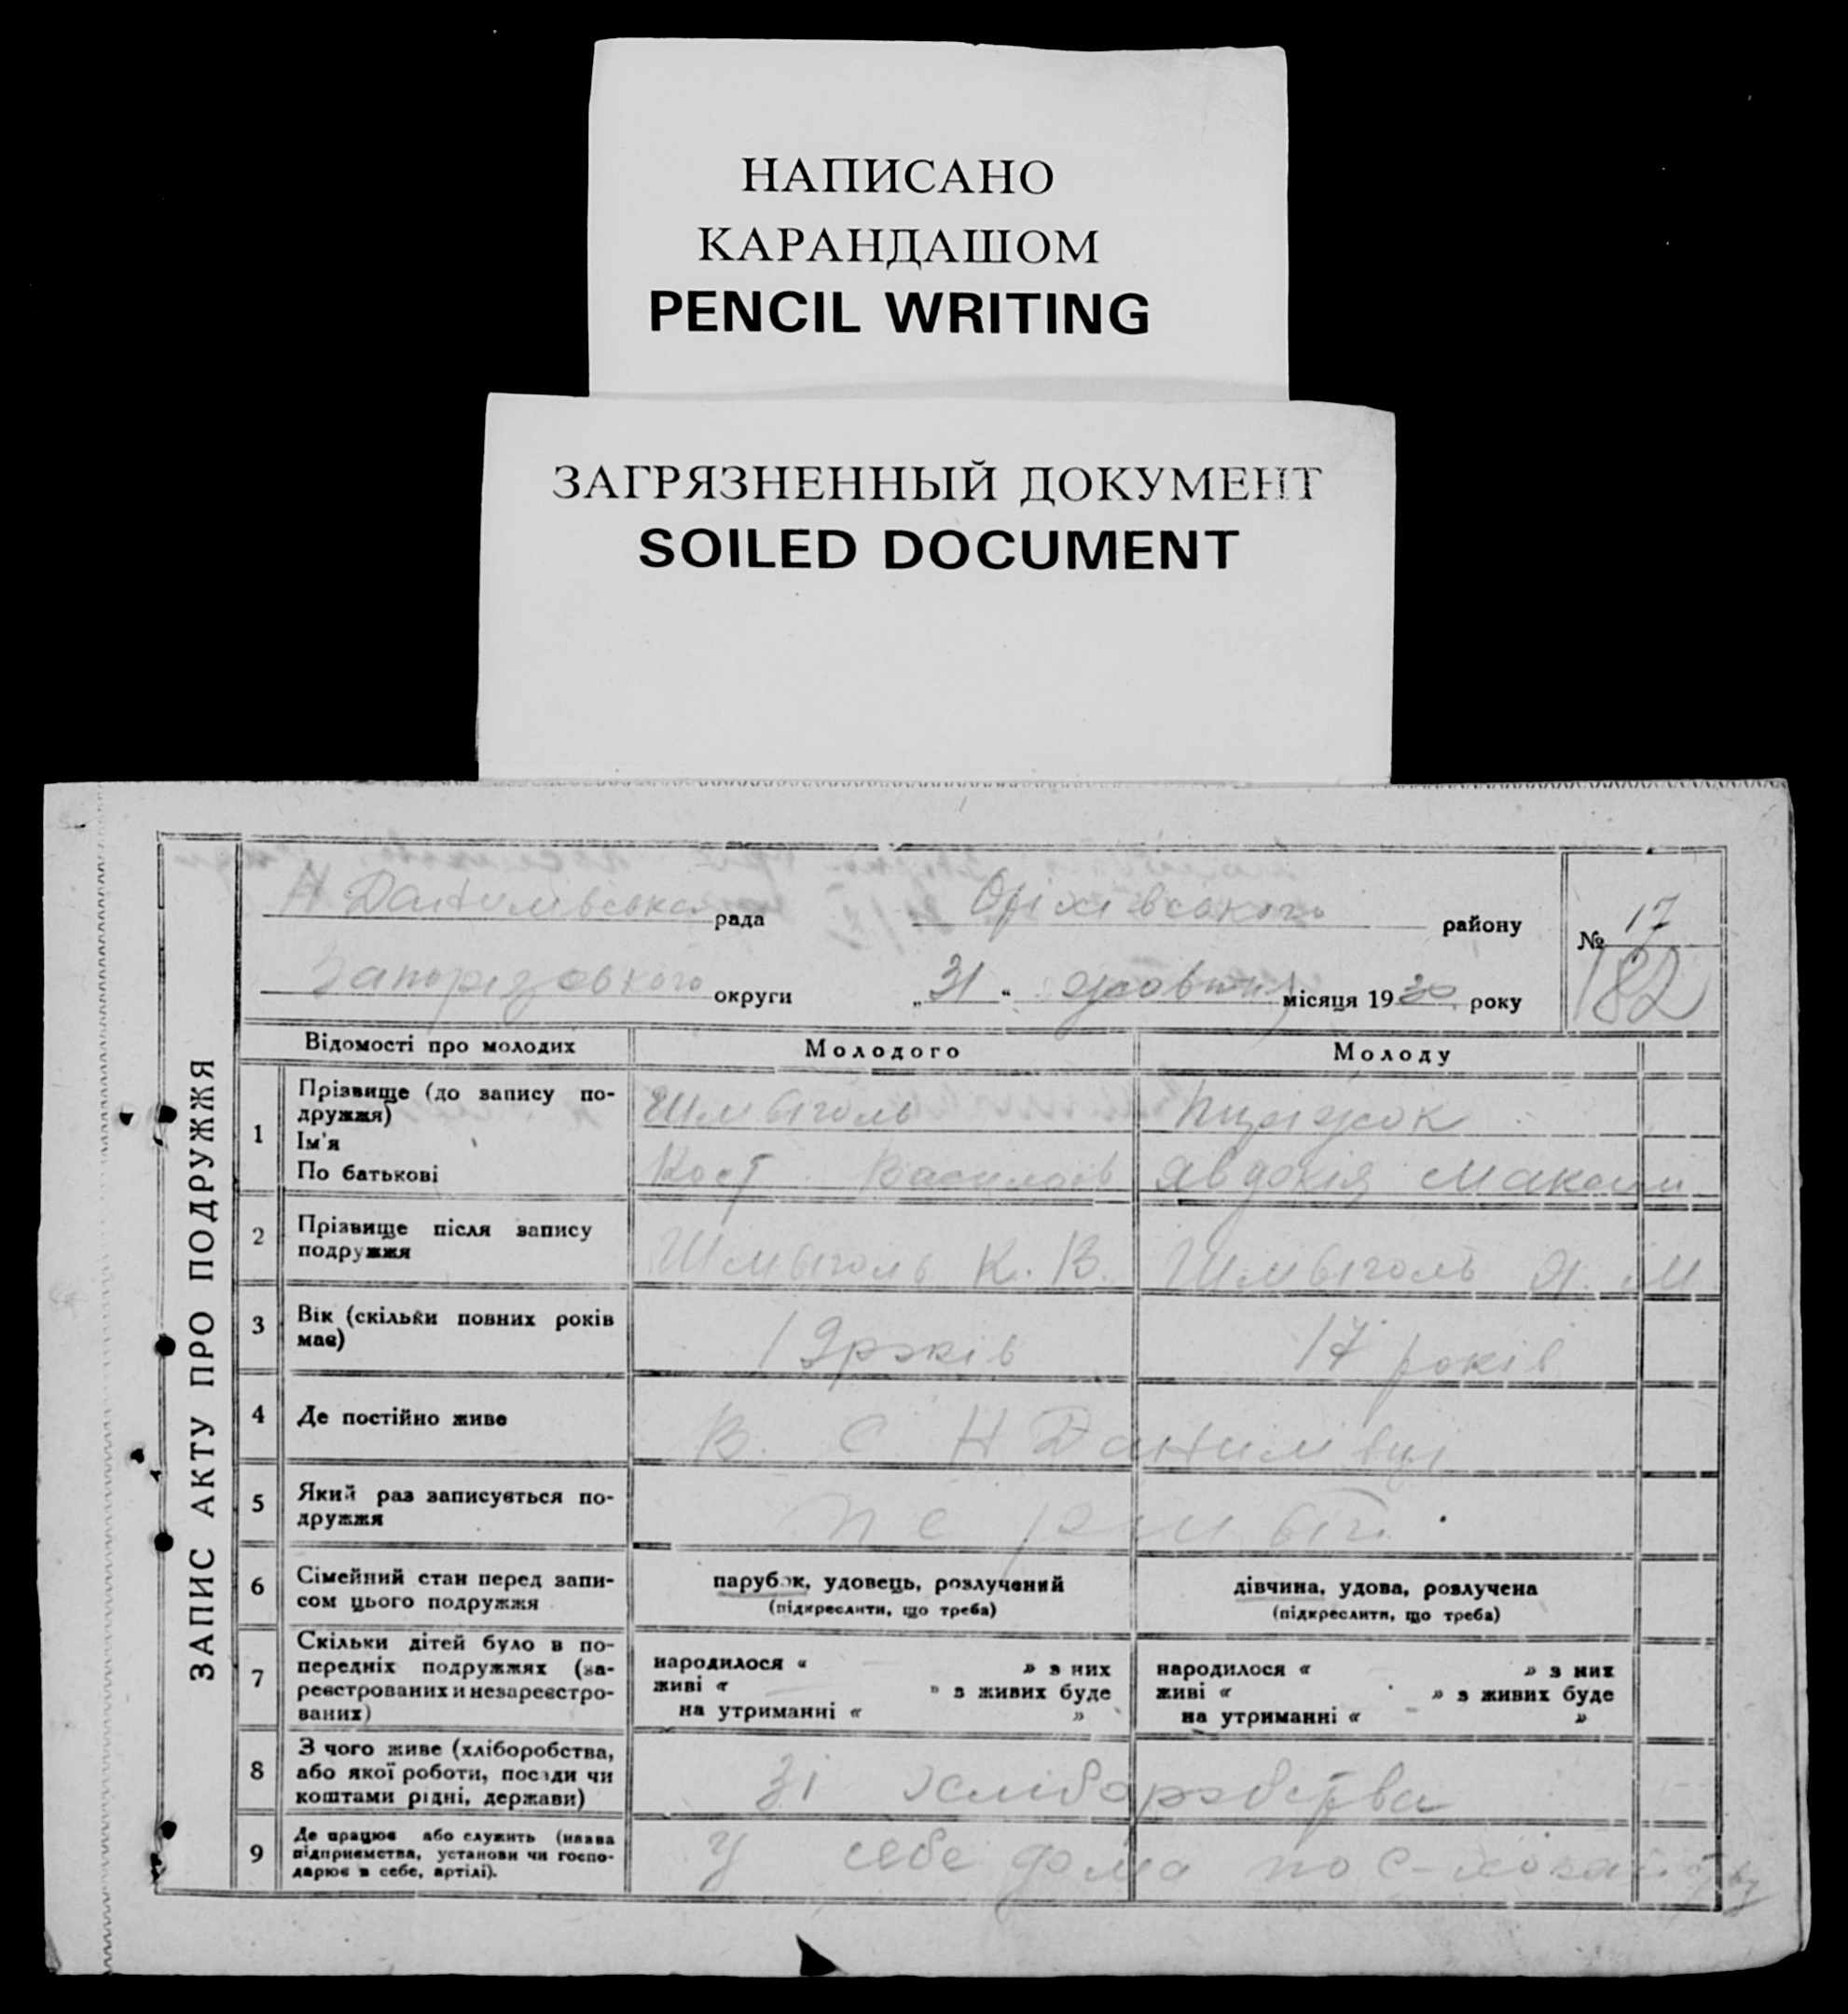 НАПИСАНО
КАРАНДАШОМ
PENCIL WRITING
ЗАГРЯЗНЕННЫЙ ДОКУМЕНТ
SOILED DOCUMENT
ЗАПИС АКТУ ПРО ПОДРУЖЖЯ
Н Данилівська рада Оріхівського району
№ 17
182
Запорізького округи „31“ жовтня місяця 1930 року
Відомості про молодих Молодого Молоду
1 Прізвище (до запису по-
дружжя) Шмыголь
Ім'я
По батькові Кост Василів Явдокія Максим
2 Прізвище після запису
подружжя Шмыголь К. В. Шмыголь Я. М
3 Вік (скільки повних років
має) 19 років 17 років
4 Де постійно живе В. С Н Данилівці
5 Який раз записується по-
дружжя первый
6 Сімейний стан перед запи-
сом цього подружжя
парубок, удовець, розлучений
(підкреслити, що треба)
дівчина, удова, розлучена
(підкреслити, що треба)
7 Скільки дітей було в по-
передніх подружжях (за-
реєстрованих и незареєстро-
ваних)
народилося « » з них
живі « » з живих буде
на утриманні « »
народилося « » з них
живі « » з живих буде
на утриманні « »
8 З чого живе (хліборобства,
або якої роботи, посади чи
коштами рідні, держави)
Зі хліборобства
9 Де працює або служить (назва
підприємства, установи чи госпо-
дарює в себе, артілі).
У себе дома по с-хозайству